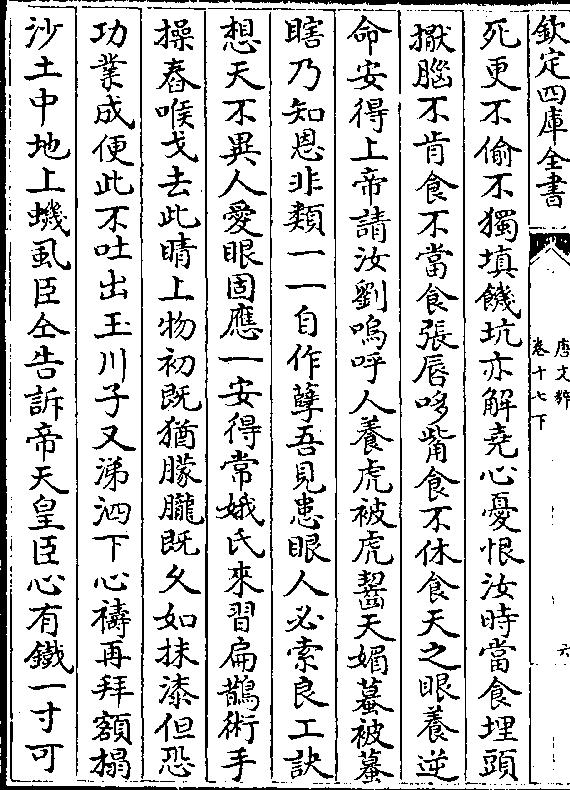 欽定四庫全書
唐文粹
卷十七下
六
死更不偷不獨填饑坑亦解堯心憂恨汝時當食埋頭
擫腦不肯食不當食張唇哆觜食不休食天之眼養逆
命安得上帝請汝劉嗚呼人養虎被虎齧天媚蟇被蟇
瞎乃知恩非類一一自作孽吾見患眼人必索良工訣
想天不異人愛眼固應一安得常娥氏來習扁鵲術手
操舂喉戈去此睛上物初既猶朦朧既久如抹漆但恐
功業成便此不吐出玉川子又涕泗下心禱再拜額搨
沙土中地上蟣虱臣仝告訴帝天皇臣心有鐵一寸可